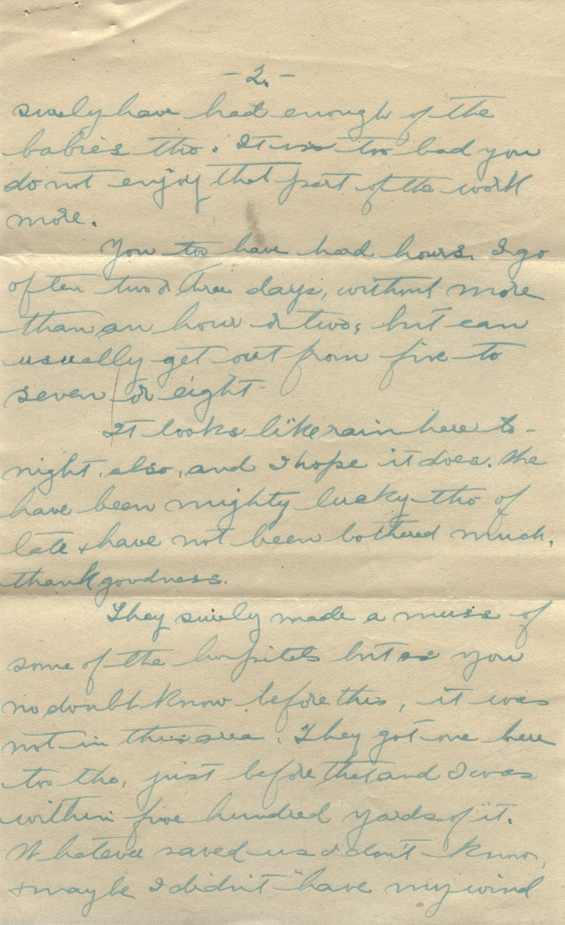 -2.-
surely have had enough of the
babies tho. It is too bad you
do not enjoy that part of the work
more.
You too have hard hours. I go
often two or three days, without more
than an hour or two, but can
usually get out from five to
seven or eight.
It looks like rain here to-
night, also, and I hope it does. We
have been mighty lucky tho of
late & have not been bothered much,
thank goodness.
They surely made a muss of
some of the hospitals but as you
no doubt know before this, it was
not in this area. They got one here
too tho, just before that and I was
within five hundred yards of it.
Whatever saved us I don't know,
& maybe I didn't "have my wind